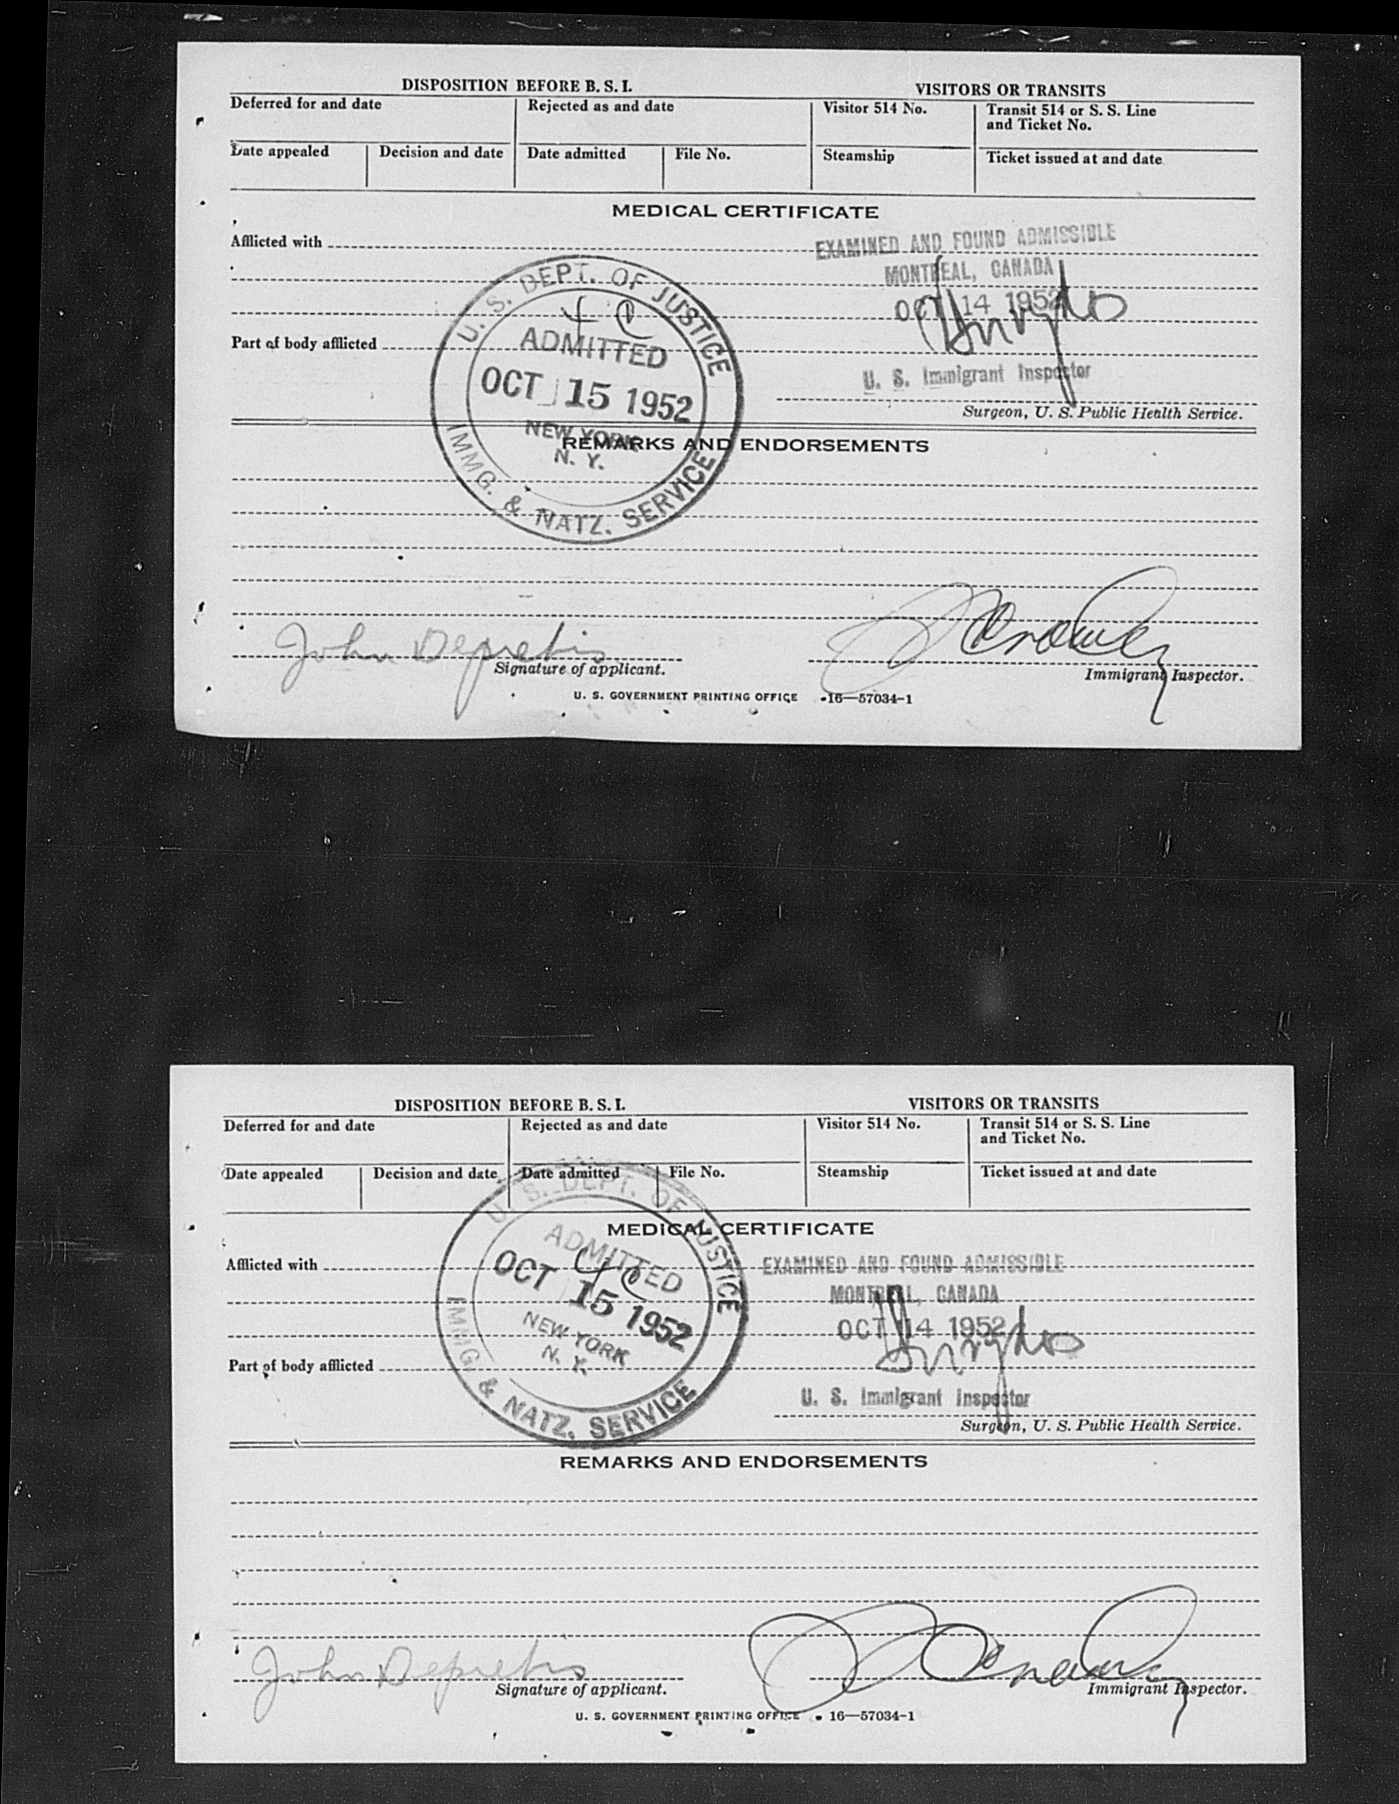 DISPOSITION BEFORE B. S. I.
VISITORS OR TRANSITS
Deferred for and date
Rejected as and date
Visitor 514 No.
Transit 514 or S. S. Line
and Ticket No.
Date appealed
Decision and date
Date admitted
File No.
Steamship
Ticket issued at and date
MEDICAL CERTIFICATE
Afflicted with
EXAMINED AND FOUND ADMISSIBLE
MONTREAL, CANADA
OCT 14 1952
U. S. DEPT. OF JUSTICE
ADMITTED
OCT 15 1952
NEW YORK
N. Y.
IMMG. & NATZ. SERVICE
Part of body afflicted
U. S. Immigrant Inspector
Surgeon, U. S. Public Health Service.
REMARKS AND ENDORSEMENTS
John Depretis
Signature of applicant.
Immigrant Inspector.
U. S. GOVERNMENT PRINTING OFFICE 16—57034-1
DISPOSITION BEFORE B. S. I.
VISITORS OR TRANSITS
Deferred for and date
Rejected as and date
Visitor 514 No.
Transit 514 or S. S. Line
and Ticket No.
Date appealed
Decision and date
Date admitted
File No.
Steamship
Ticket issued at and date
MEDICAL CERTIFICATE
U. S. DEPT. OF JUSTICE
ADMITTED
OCT 15 1952
NEW YORK
N. Y.
IMMG. & NATZ. SERVICE
Afflicted with
EXAMINED AND FOUND ADMISSIBLE
MONTREAL, CANADA
OCT 14 1952
Part of body afflicted
U. S. Immigrant Inspector
Surgeon, U. S. Public Health Service.
REMARKS AND ENDORSEMENTS
John Depretis
Signature of applicant.
Immigrant Inspector.
U. S. GOVERNMENT PRINTING OFFICE 16—57034-1